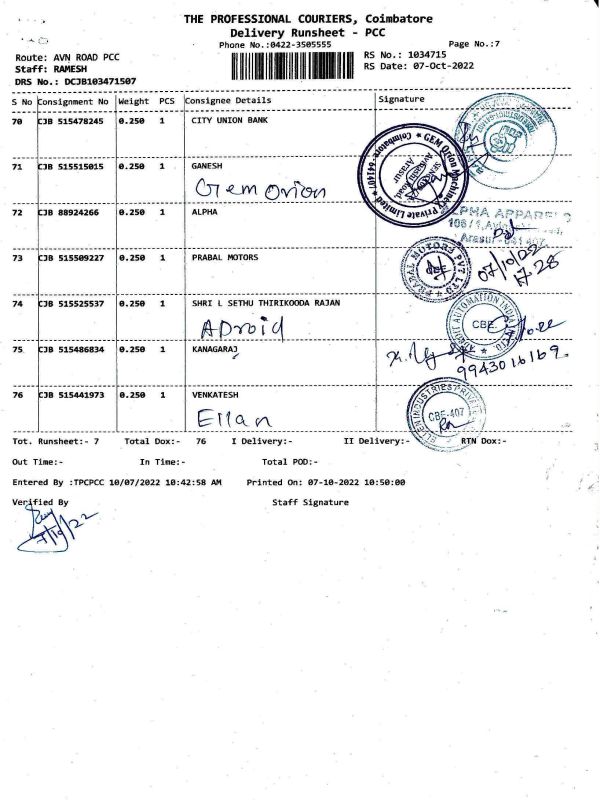 THE PROFESSIONAL COURIERS, Coimbatore
Delivery Runsheet - PCC
Phone No.:0422-3505555
Page No.:7
Route: AVN ROAD PCC
Staff: RAMESH
DRS No.: DCJB103471507
RS No.: 1034715
RS Date: 07-Oct-2022
S No Consignment No Weight PCS Consignee Details Signature
70 CJB 515478245 0.250 1 CITY UNION BANK
71 CJB 515515015 0.250 1 GANESH
Gem Orion
GEM Orion Machinery Private Limited * Coimbatore-641407 *
Arasur
72 CJB 88924266 0.250 1 ALPHA
ALPHA APPARELS
Arasur - 641 407.
73 CJB 515509227 0.250 1 PRABAL MOTORS
PRABAL MOTORS PVT LTD
CBE
07/10/22
17-28
74 CJB 515525537 0.250 1 SHRI L SETHU THIRIKOODA RAJAN
ADroid
AUTOMATION INDIA
CBE
75 CJB 515486834 0.250 1 KANAGARAJ
9943016169
76 CJB 515441973 0.250 1 VENKATESH
Ellan
INDUSTRIES PRIVATE
CBE-407
Tot. Runsheet:- 7 Total Dox:- 76 I Delivery:- II Delivery:- RTN Dox:-
Out Time:- In Time:- Total POD:-
Entered By :TPCPCC 10/07/2022 10:42:58 AM Printed On: 07-10-2022 10:50:00
Verified By Staff Signature
7/10/22